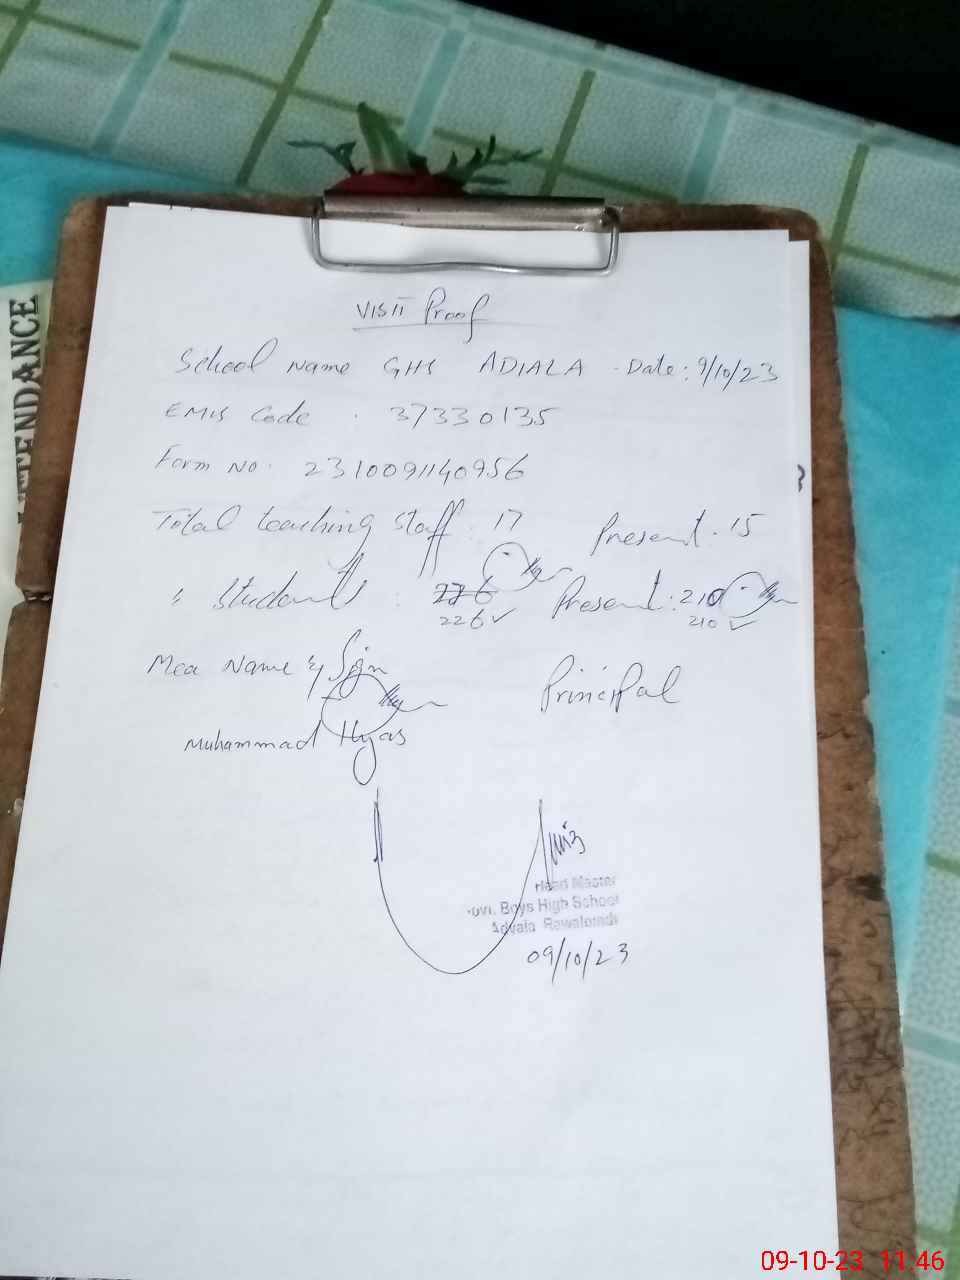 VISIT Proof
School Name GHS ADIALA . Date: 9/10/23
EMIS Code : 37330135
Form No. 2310091140956
Total teaching Staff : 17 Present . 15
" Students : 226 Present : 210
226 ✓ 210 ✓
Mea Name & Sign Principal
Muhammad Ilyas
Head Master
Govt. Boys High School
Adyala Rawalpindi
09/10/23
ATTENDANCE
09-10-23 11:46